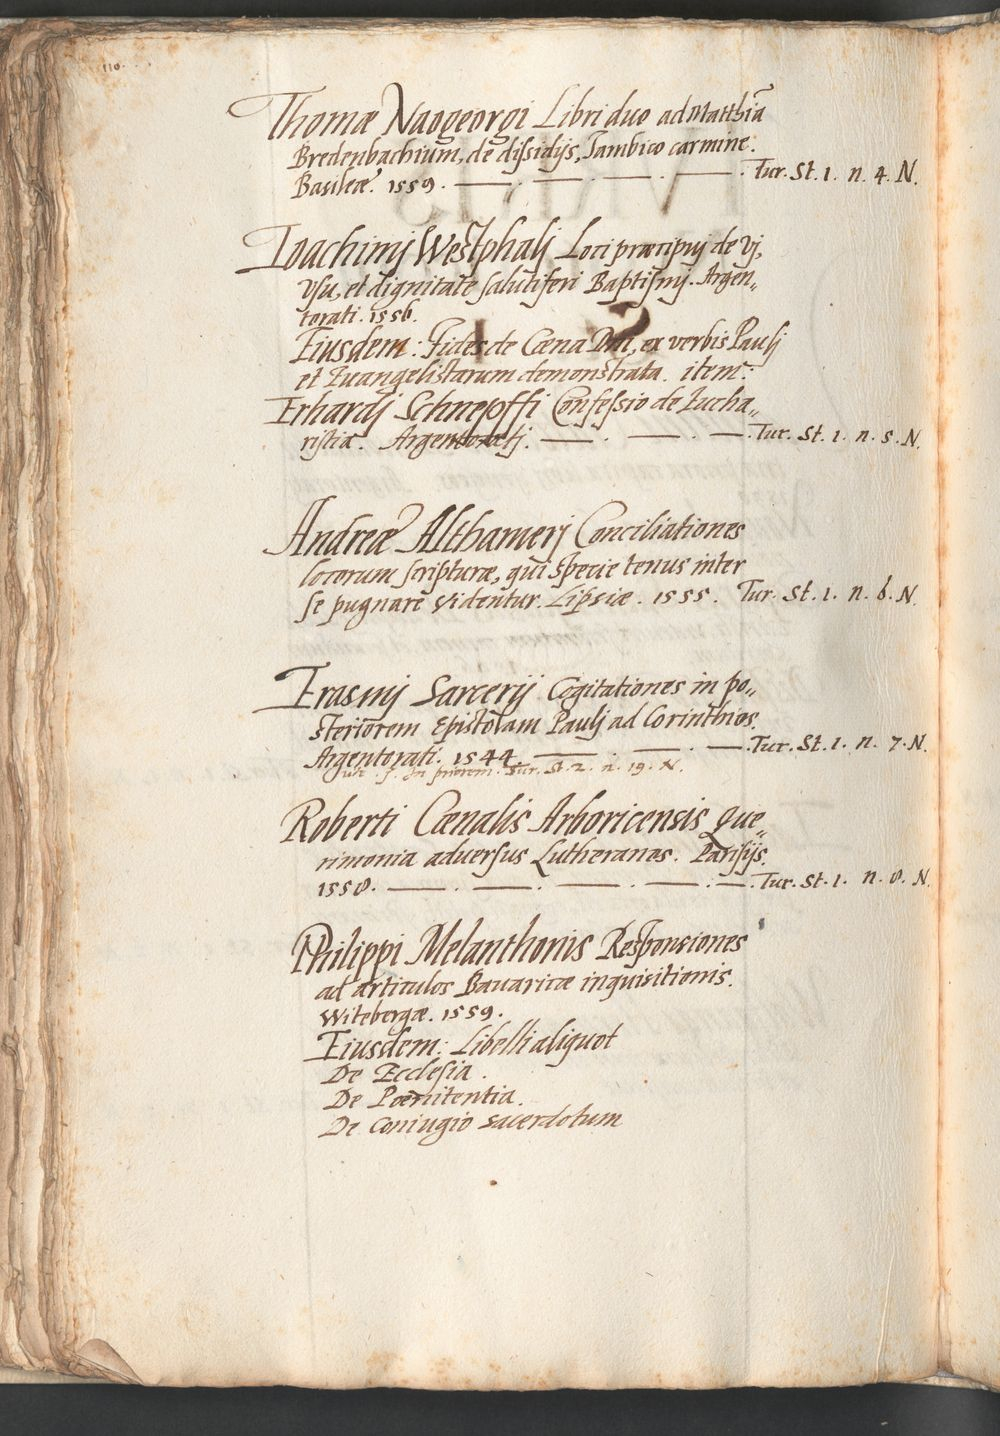 110.
Thomæ Naogeorgi Libri duo ad Matthiã
Bredenbachium, de dissidijs, Iambico carmine.
Basileæ. 1559. — . — . — . — . Tur. St. 1. n. 4. N.
Ioachimj Westphalj Loci præcipuj de vj,
vsu, et dignitate salutiferi Baptismj. Argen„
torati. 1556.
Eiusdem: Fides de Cœna Dni, ex verbis Paulj
et Euangelistarum demonstrata. item:
Erhardj Schnepffi Confessio de Eucha„
ristia. Argentoratj. — . — . — . Tur. St. 1. n. 5. N.
Andreæ Althamerj Conciliationes
locorum scripturæ, qui specie tenus inter
se pugnare videntur. Lipsiæ. 1555. Tur. St. 1. n. 6. N.
Erasmj Sarcerij Cogitationes in po„
steriorem Epistolam Paulj ad Corinthios.
Argentorati. 1544. — . — . — . Tur. St. 1. n. 7. N.
In priorem. Tur. St. 2. n. 19. N.
Roberti Cœnalis Arboricensis Que„
rimonia aduersus Lutheranos. Parisijs.
1558. — . — . — . — . — . Tur. St. 1. n. 8. N.
Philippi Melanthonis Responsiones
ad articulos Bauaricæ inquisitionis.
Witebergæ. 1559.
Eiusdem: Libelli aliquot
De Ecclesia.
De Pœnitentia.
De Coniugio sacerdotum